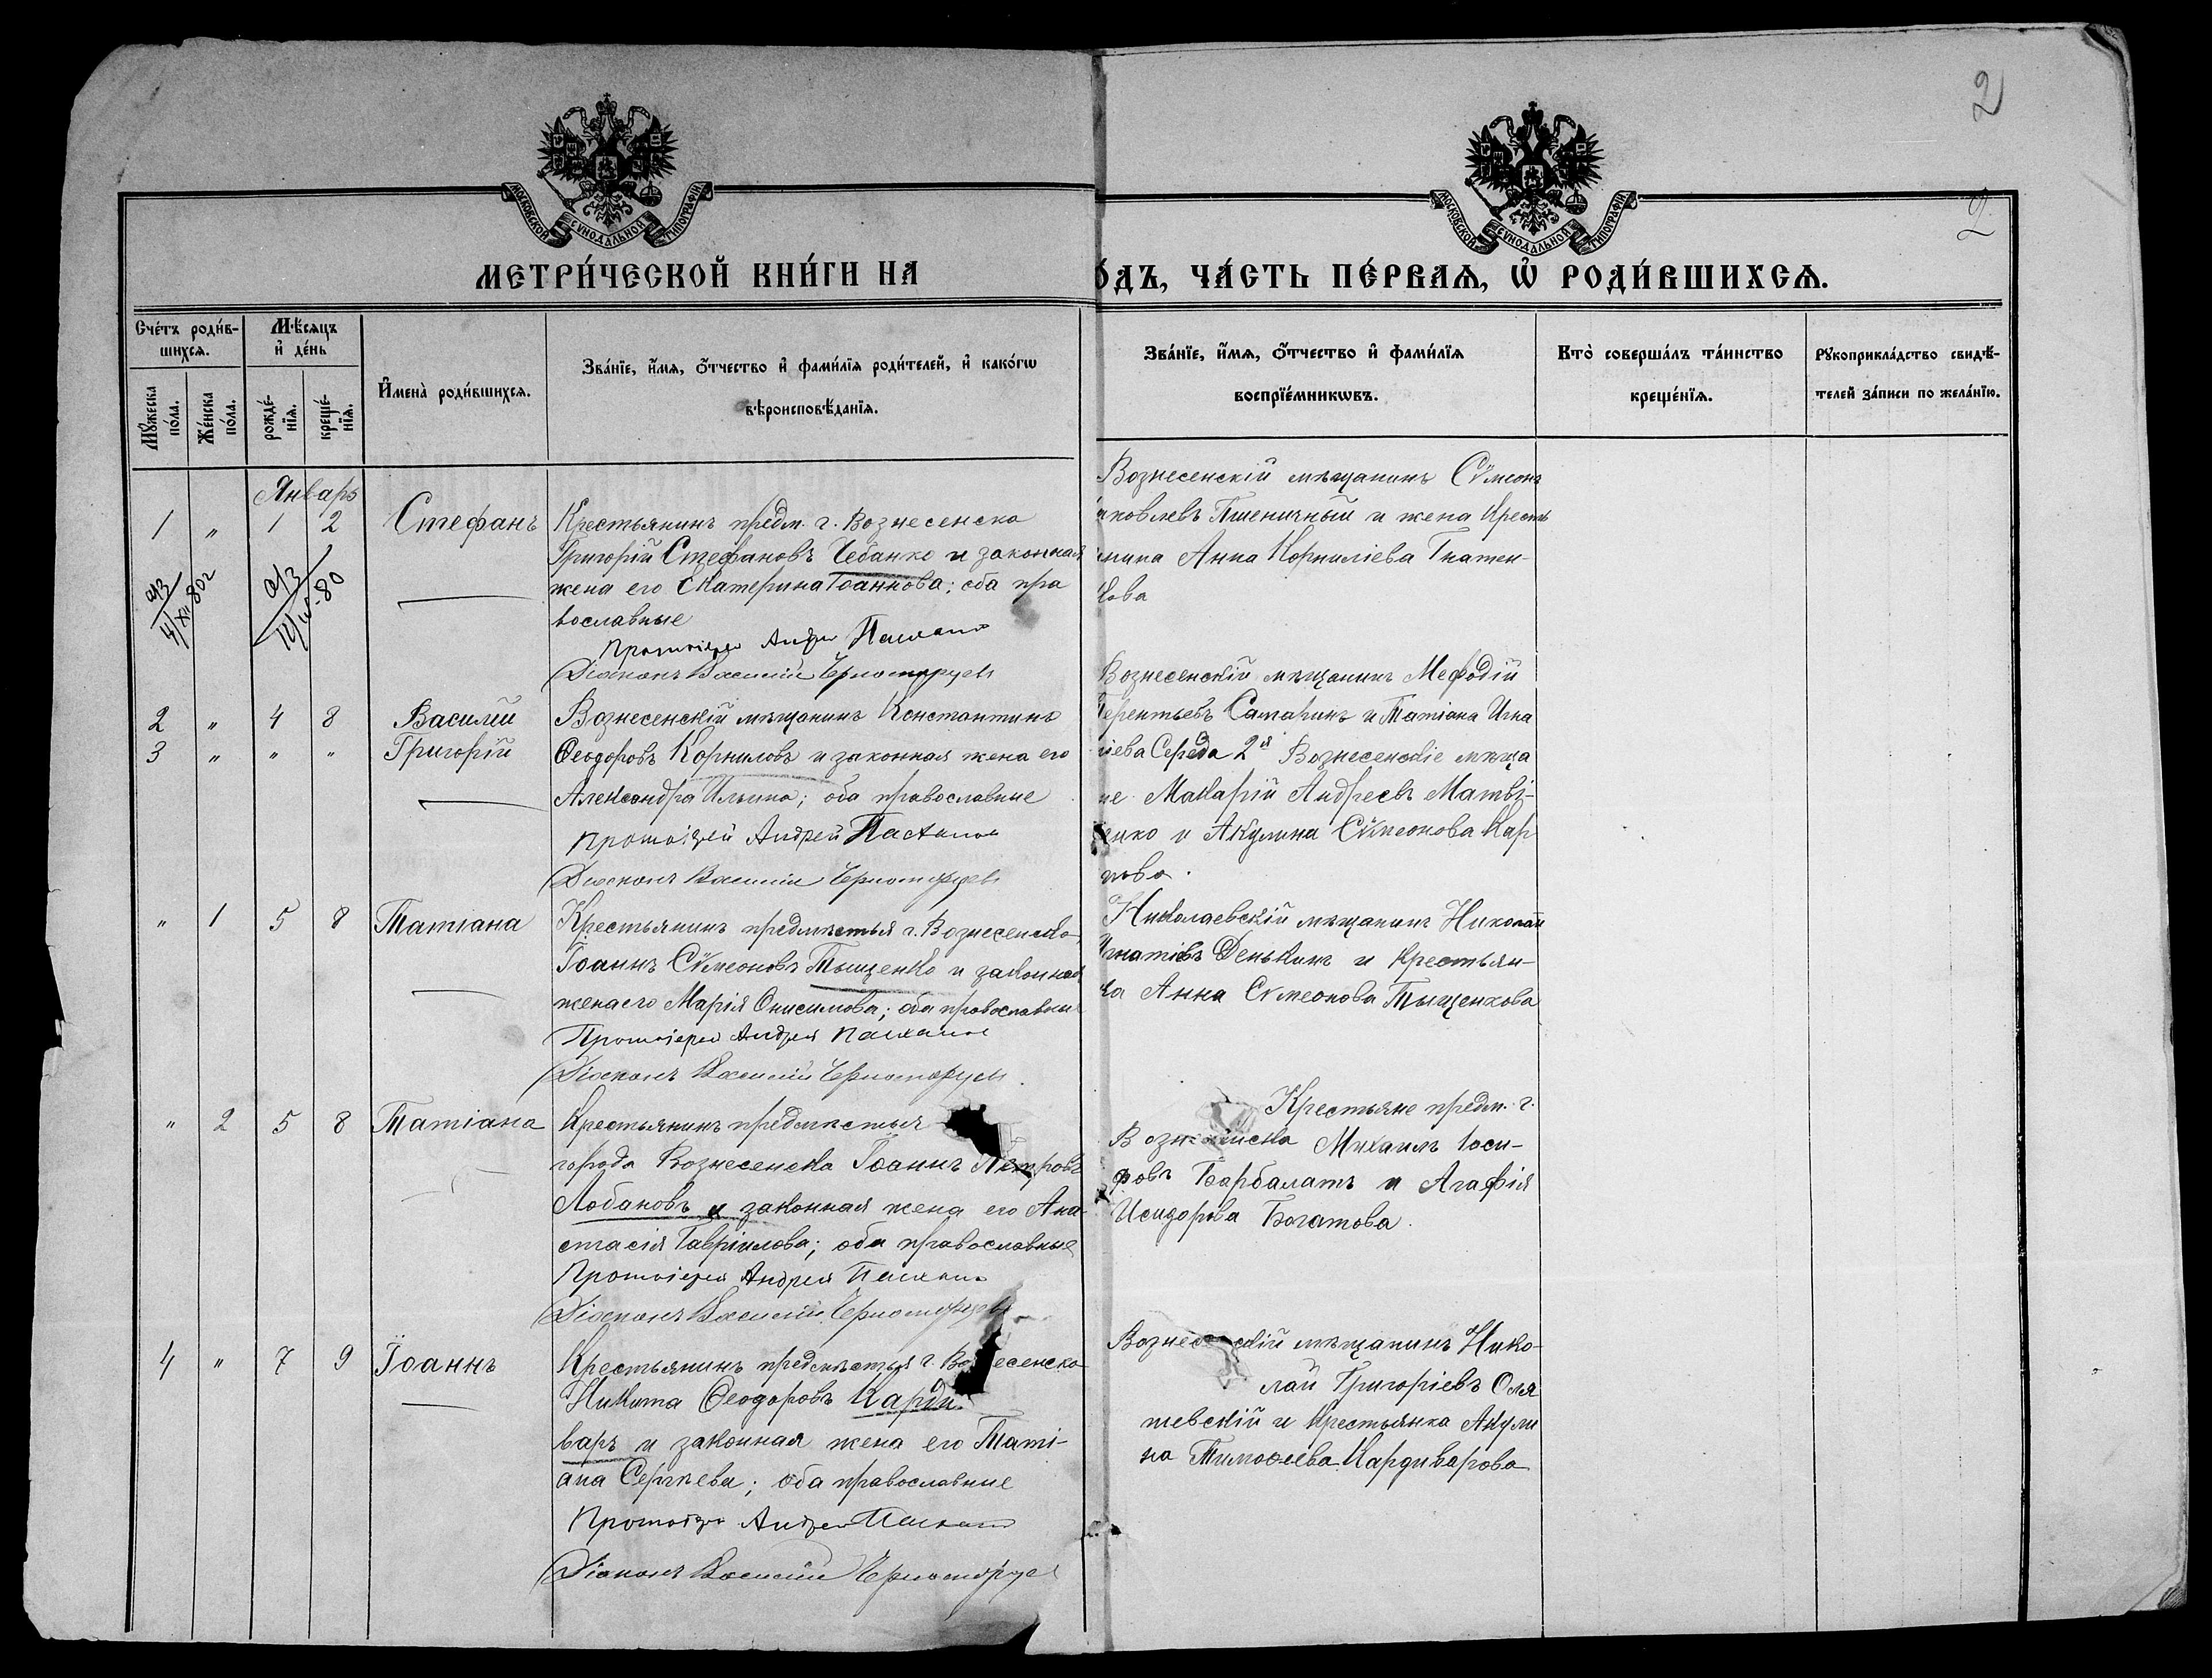 2
2
МОСКОВСКОЙ СѴНОДАЛЬНОЙ ТИПОГРАФІИ
МОСКОВСКОЙ СѴНОДАЛЬНОЙ ТИПОГРАФІИ
МЕТРИ́ЧЕСКОЙ КНИ́ГИ НА
О́ДЪ, ЧА́СТЬ ПЕ́РВАѦ, Ѡ҆ РОДИ́ВШИХСѦ.
Сче́тъ роди́в-
шихсѧ.
Мꙋ́жеска
по́ла.
Же́нска
по́ла.
Мѣ́сѧцъ
и҆ де́нь
рожде́-
нїѧ.
креще́-
нїѧ.
И҆мена̀ роди́вшихсѧ.
Зва́нїе, и҆́мѧ, ѻ҆́тчество и҆ фами́лїѧ роди́телей, и҆ како́гѡ
вѣроисповѣ́данїѧ.
Зва́нїе, и҆́мѧ, ѻ҆́тчество и҆ фами́лїѧ
воспрїе́мникѡвъ.
Кто̀ соверша́лъ та́инство
креще́нїѧ.
Рꙋкоприкла́дство свидѣ́-
телей за́писи по жела́нїю.
Январь
1 " 1 2 Стефанъ
Крестьянинъ предм. г. Вознесенска
Григорій Стефановъ Чебанко и законная
жена его Екатерина Іоаннова; оба пра
вославные
Протоіерей Андрей
Діаконъ Василій Черноморцевъ
Вознесенскій мѣщанинъ Сѵмеонъ
Яковлевъ Пшеничный и жена крестья
нина Анна Корниліева Гнатен-
кова
2 " 4 8 Василій
3 " " " Григорій
Вознесенскій мѣщанинъ Константинъ
Ѳеодоровъ Корниловъ и законная жена его
Александра Ильина; оба православные
Протоіерей Андрей
Діаконъ Василій Черноморцевъ
Вознесенскій мѣщанинъ Меѳодій
Терентьевъ Самаринъ и Татіана Игна
тіева Середа 2й Вознесенскіе мѣща
не Макарій Андреевъ Матві-
енко и Акулина Сѵмеонова Кар
пова.
" 1 5 8 Татіана
Крестьянинъ предмѣстья г. Вознесенска
Іоаннъ Сѵмеоновъ Тыщенко и законная
жена его Марія Онисимова; оба православные
Протоіерей Андрей
Діаконъ Василій Черноморцевъ
Николаевскій мѣщанинъ Николай
Игнатіевъ Денькинъ и крестьян-
ка Анна Сѵмеонова Тыщенкова
" 2 5 8 Татіана
Крестьянинъ предмѣстья
города Вознесенска Іоаннъ Петровъ
Лобановъ и законная жена его Ана-
стасія Гавріилова; оба православные
Протоіерей Андрей
Діаконъ Василій Черноморцевъ
Крестьяне предм. г.
Вознесенска Михаилъ Іоси-
фовъ Барбалатъ и Агафія
Исидорова Богатова.
4 " 7 9 Іоаннъ
Крестьянинъ предмѣстья г. Вознесенска
Никита Ѳеодоровъ Карди-
варъ и законная жена его Таті-
ана Сергѣева; оба православные
Протоіерей Андрей
Діаконъ Василій Черноморцевъ
Вознесенскій мѣщанинъ Нико-
лай Григоріевъ Оля
шевскій и крестьянка Акули
на Тимоѳеева Кардиварова